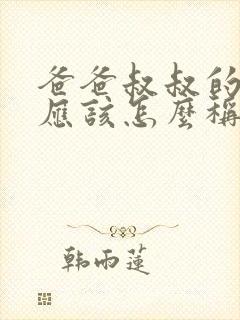 爸爸叔叔的
應該怎麼稱
韩雨莲